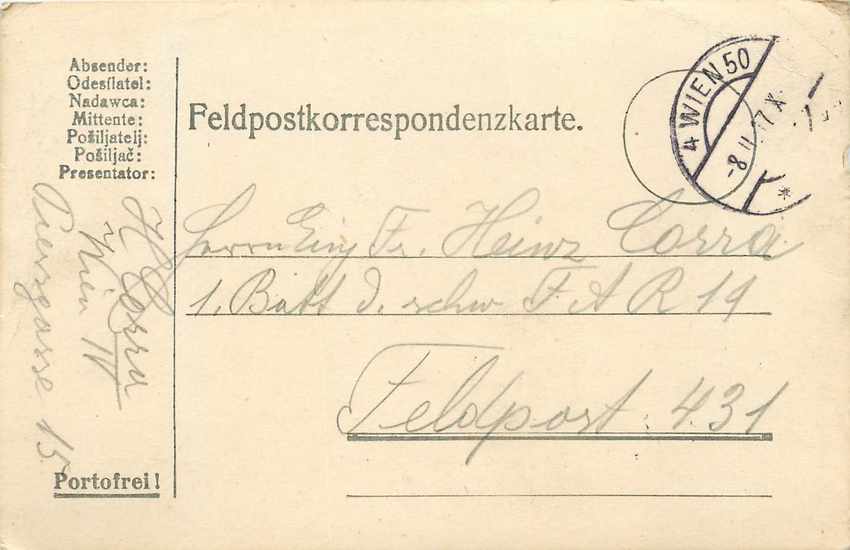 Absender:
Odesílatel:
Nadawca:
Mittente:
Pošiljatelj:
Pošiljač:
Presentator:
H Corra
Wien IV
15.
Portofrei!
Feldpostkorrespondenzkarte.
4 WIEN 50
-8 II 17 X
*
Herrn Einj Fr. Heinz Corra
1. Batt d. schw F A R 19
Feldpost: 431